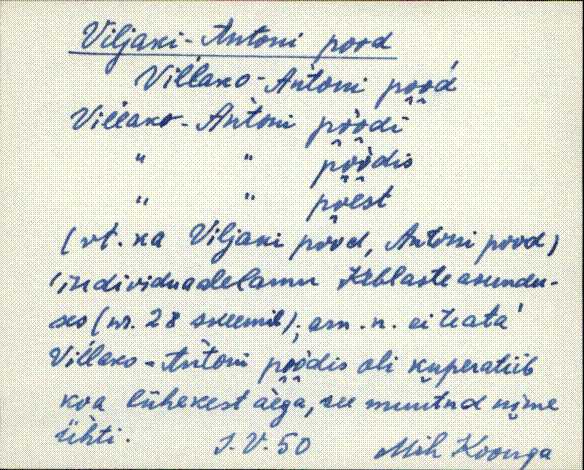 Viljaki-Antoni pood
Villako-Antoni pood
Villako-Antoni poodi
" " poodis
" " poest
(vt. ka Viljaki pood, Antoni pood)
individuaalelamu Keblaste asundu-
ses (nr. 28 skeemil), arv. n. ei teata
Villako-Antoni poodis oli kuperatiib
koa lühekest aega, see muutnd nime
ühti. I.V.50 Mih Koonga